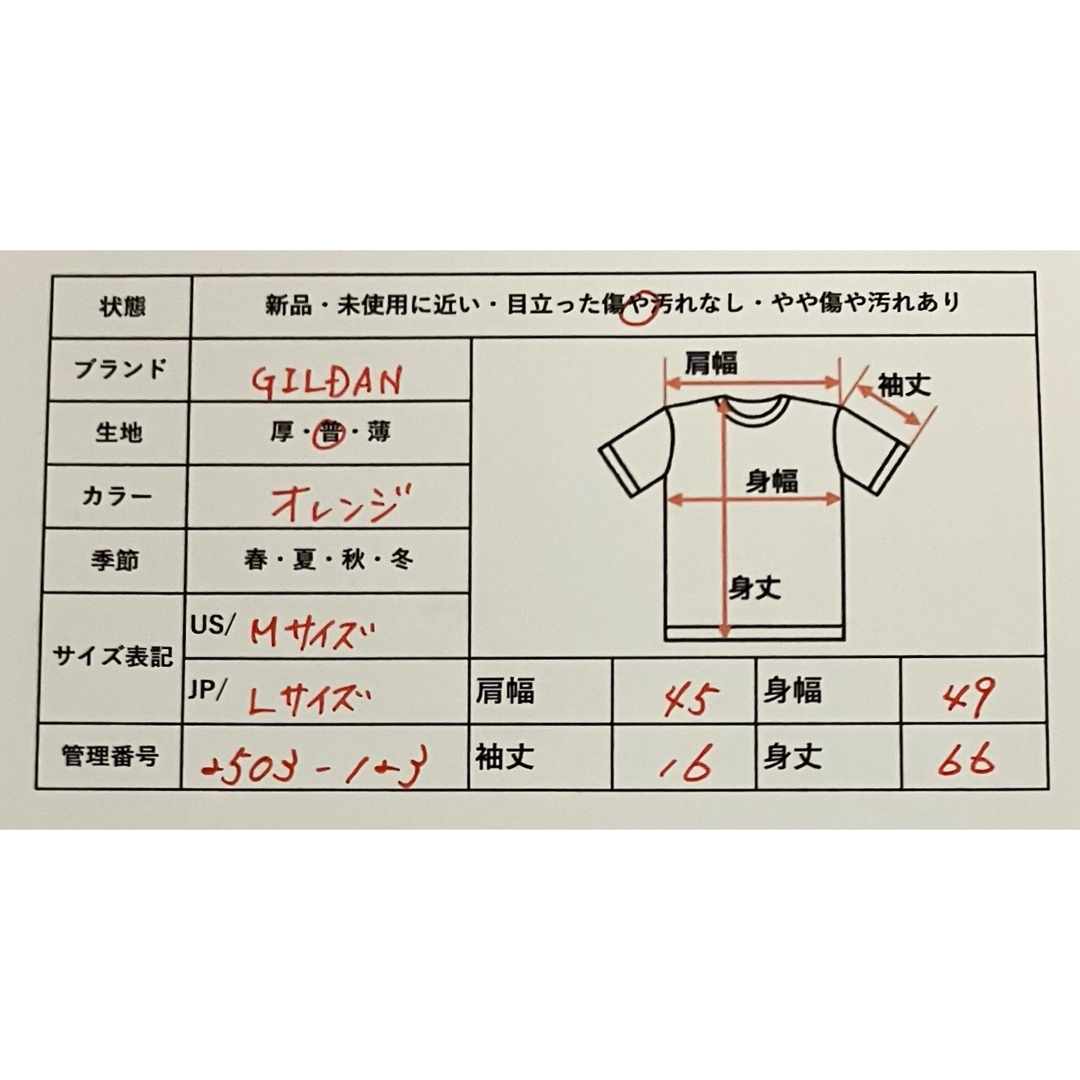 状態 新品・未使用に近い・目立った傷や汚れなし・やや傷や汚れあり
ブランド GILDAN
生地 厚・普・薄
カラー オレンジ
季節 春・夏・秋・冬
サイズ表記
US/ Mサイズ
JP/ Lサイズ
管理番号 2503-123
肩幅
袖丈
身幅
身丈
肩幅 45 身幅 49
袖丈 16 身丈 66